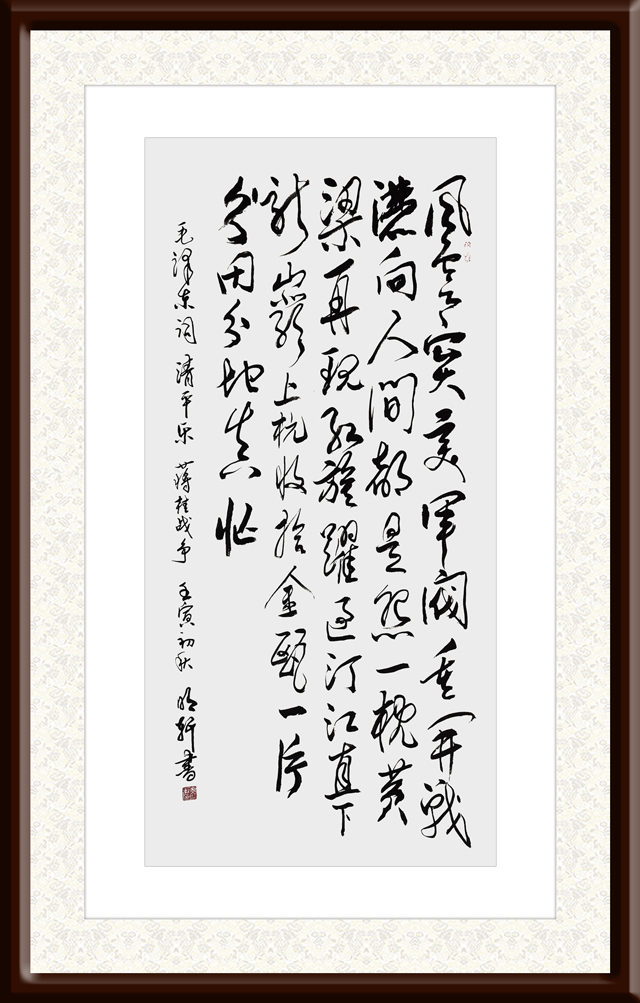 風雲突变軍閥重開戰
灑向人間都是怨一枕黄
粱再現紅旗躍過汀江直下
龍巖上杭收拾金甌一片
分田分地真忙
毛澤东词 清平乐 蒋桂战争 壬寅初秋 書